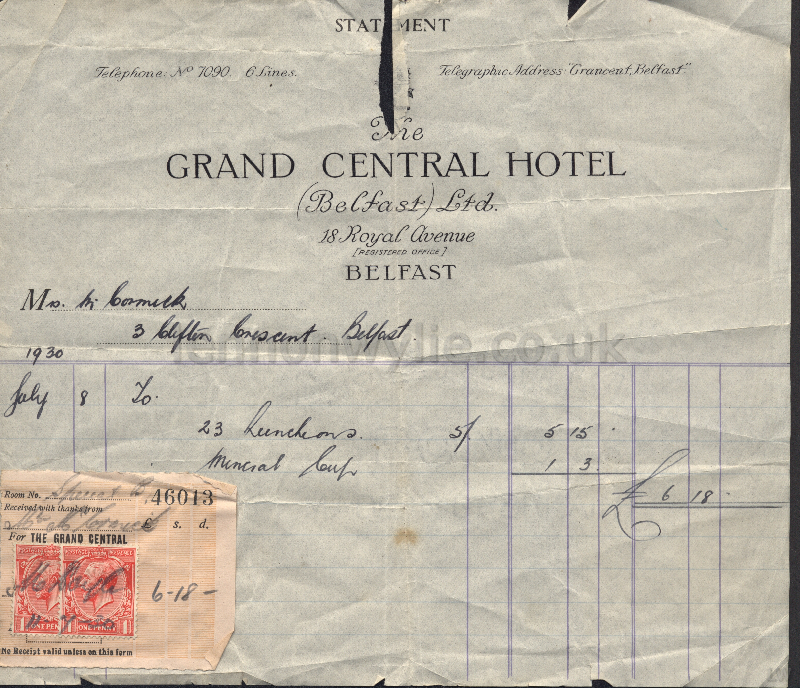 STATEMENT
Telephone: No 7090. 6 Lines.
Telegraphic Address "Grancent, Belfast."
The
GRAND CENTRAL HOTEL
(Belfast) Ltd.
18 Royal Avenue
[REGISTERED OFFICE]
BELFAST
Mrs. Mc Cormick
3 Clifton Crescent. Belfast.
lennonwylie.co.uk
1930
July 8 To.
23 Luncheons. 5/. 5 15 .
Mineral Cup 1 3
£ 6 18 -
Room No. 46013
Received with thanks from
Mc Cormick £ s. d.
For THE GRAND CENTRAL
6-18-
1 ONE PENNY 1 ONE PENNY 1
No Receipt valid unless on this form